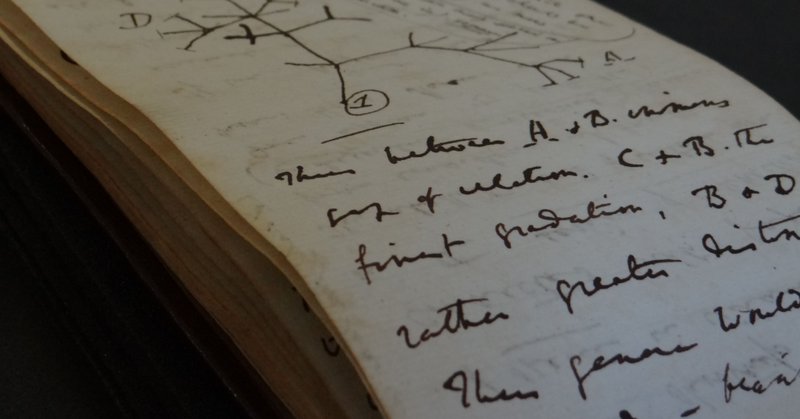 D
A
1
Thus between A & B. immens
gap of relation. C & B. the
finest gradation, B & D
rather greater distin
Thus genera would